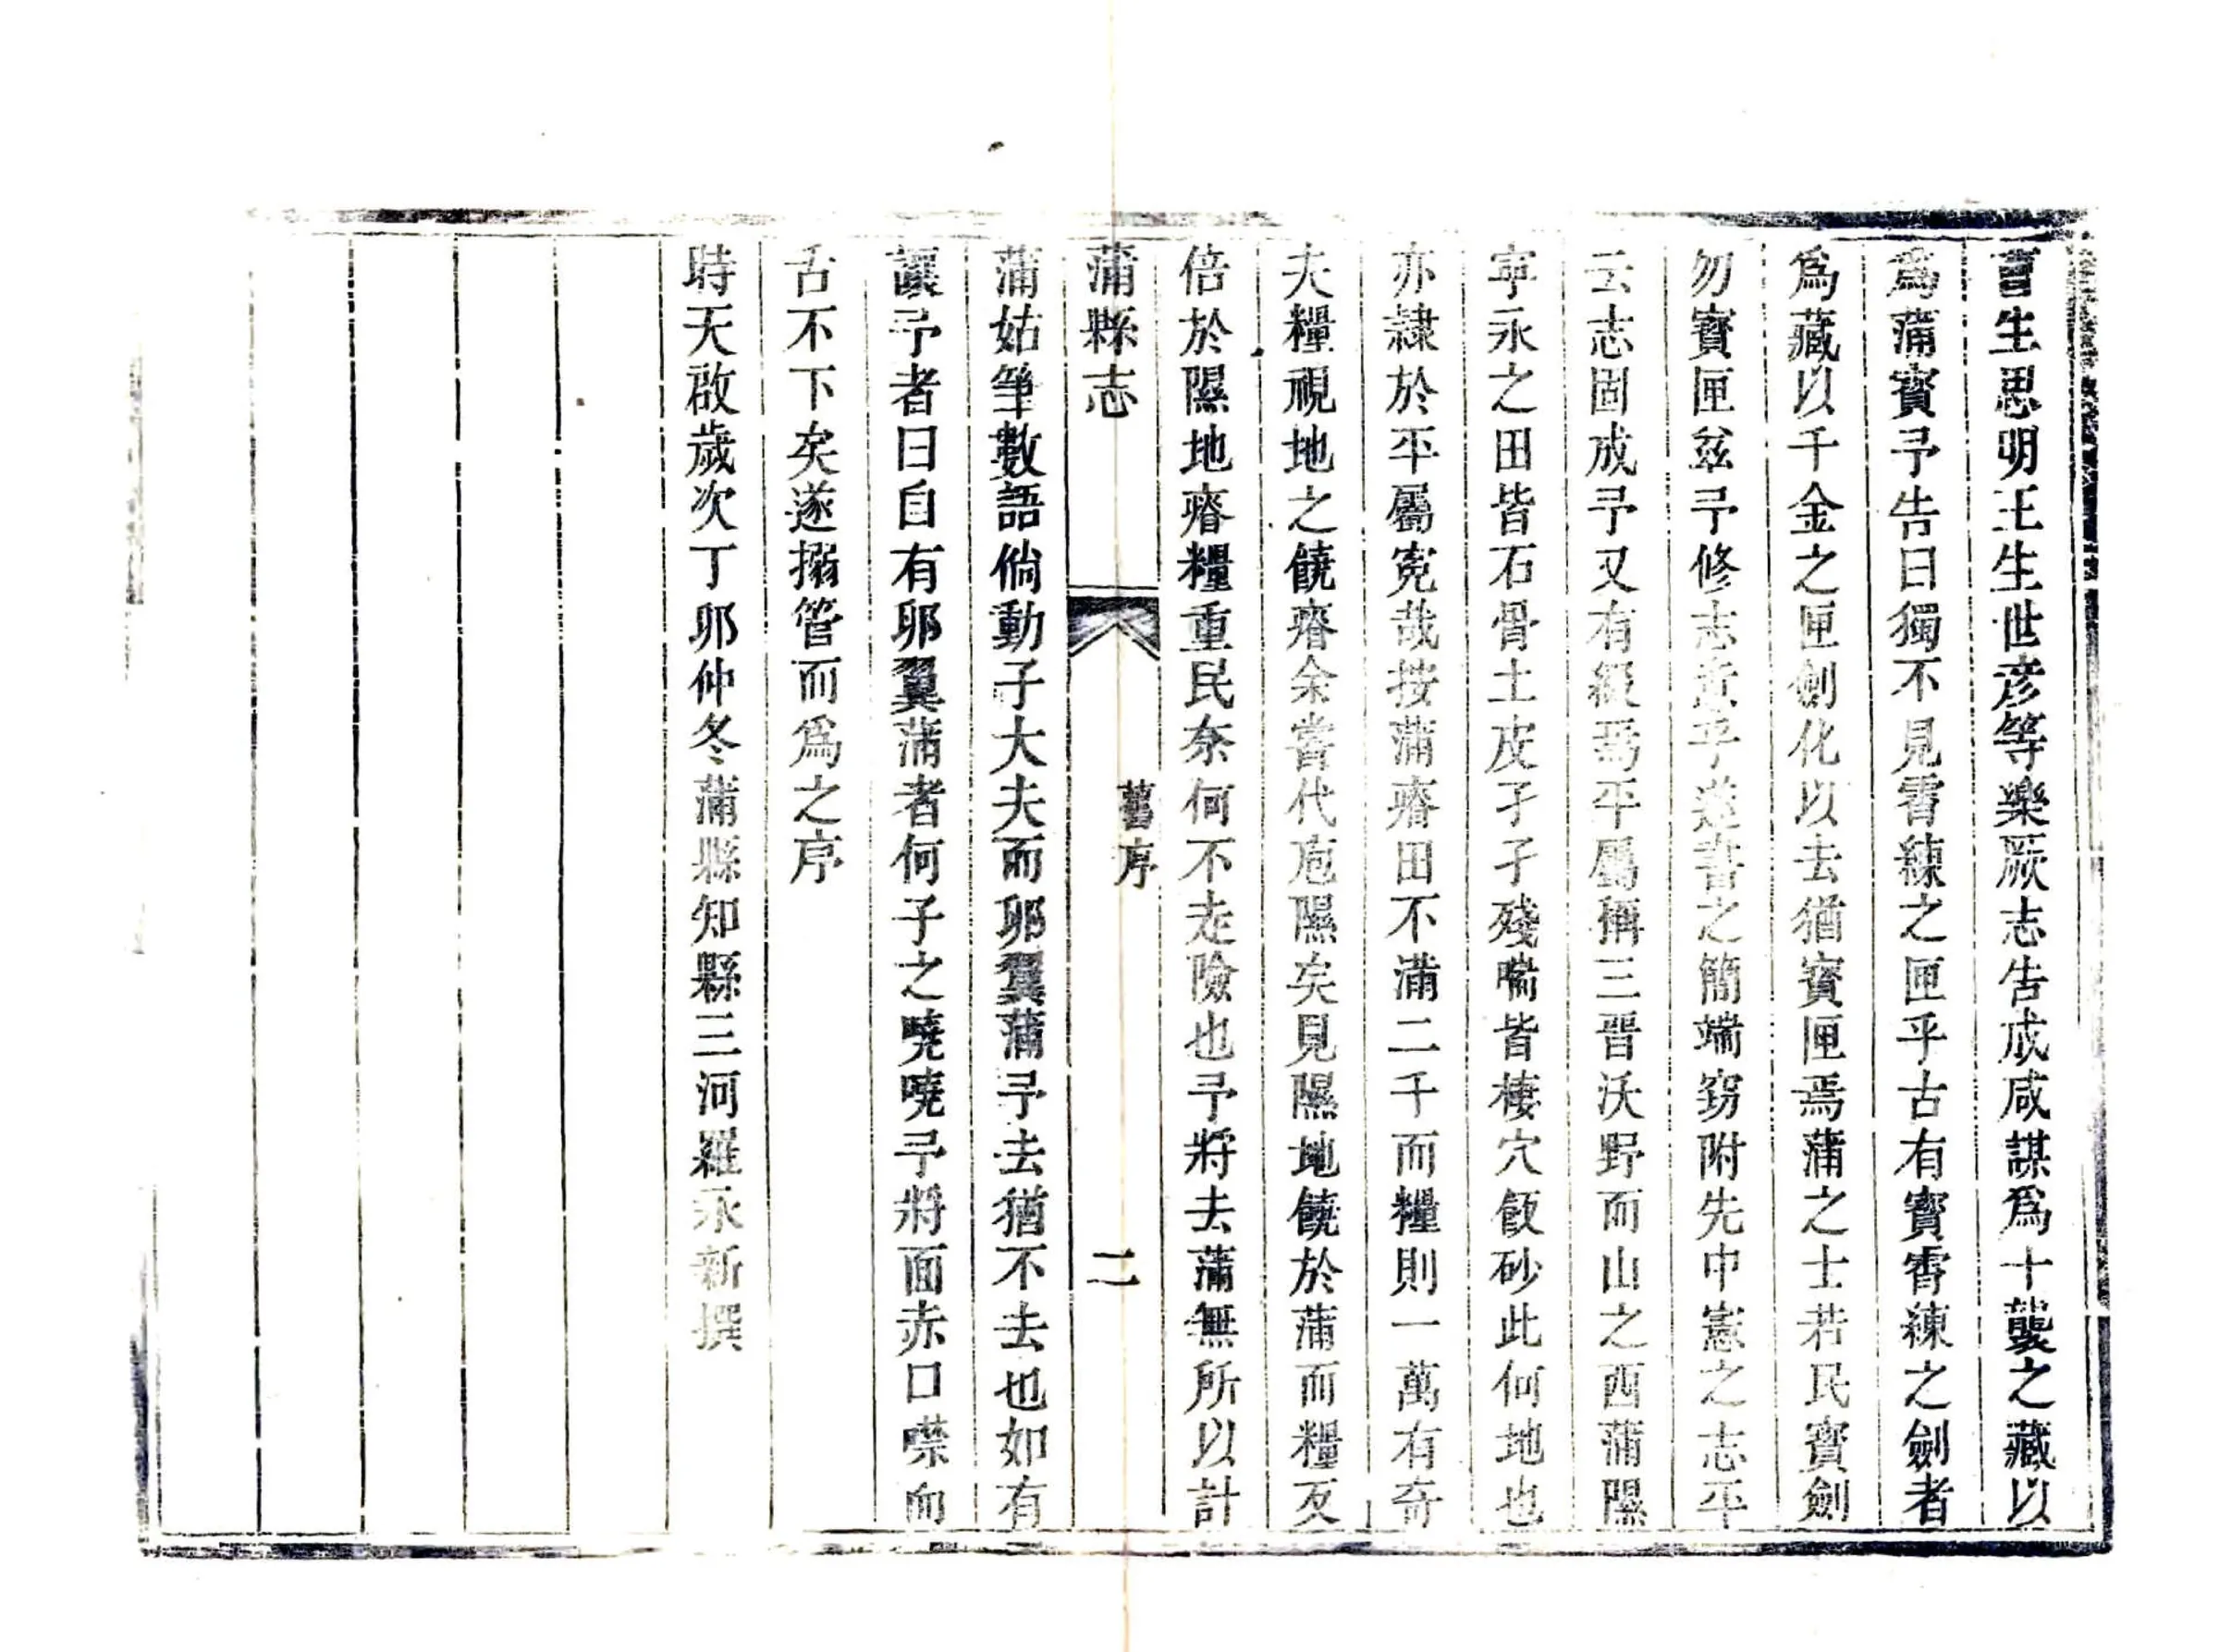 曺生思明王生世彦等樂厥志告成咸謀爲十襲之藏以
爲蒲寳予告曰獨不見霄練之匣乎古有寳霄練之劍者
爲藏以千金之匣劍化以去猶寳匣焉蒲之士若民寳劍
勿寳匣玆予修志意乎遂書之簡端窃附先中憲之志平
云志固成予又有綴焉平屬稱三晋沃野而山之西蒲隰
寜永之田皆石骨土皮孑孑殘喘皆棲穴飯砂此何地也
亦隷於平屬寃哉按蒲瘠田不滿二千而糧則一萬有奇
夫糧視地之饒瘠余嘗代庖隰矣見隰地饒於蒲而糧反
倍於隰地瘠糧重民奈何不走險也予將去蒲無所以計
蒲縣志
舊序
二
蒲姑筆數語倘動子大夫而卵翼蒲予去猶不去也如有
讓予者曰自有卵翼蒲者何子之嘵嘵予將面赤口噤而
舌不下矣遂搦管而爲之序
時天啟歲次丁卯仲冬蒲縣知縣三河羅永新撰